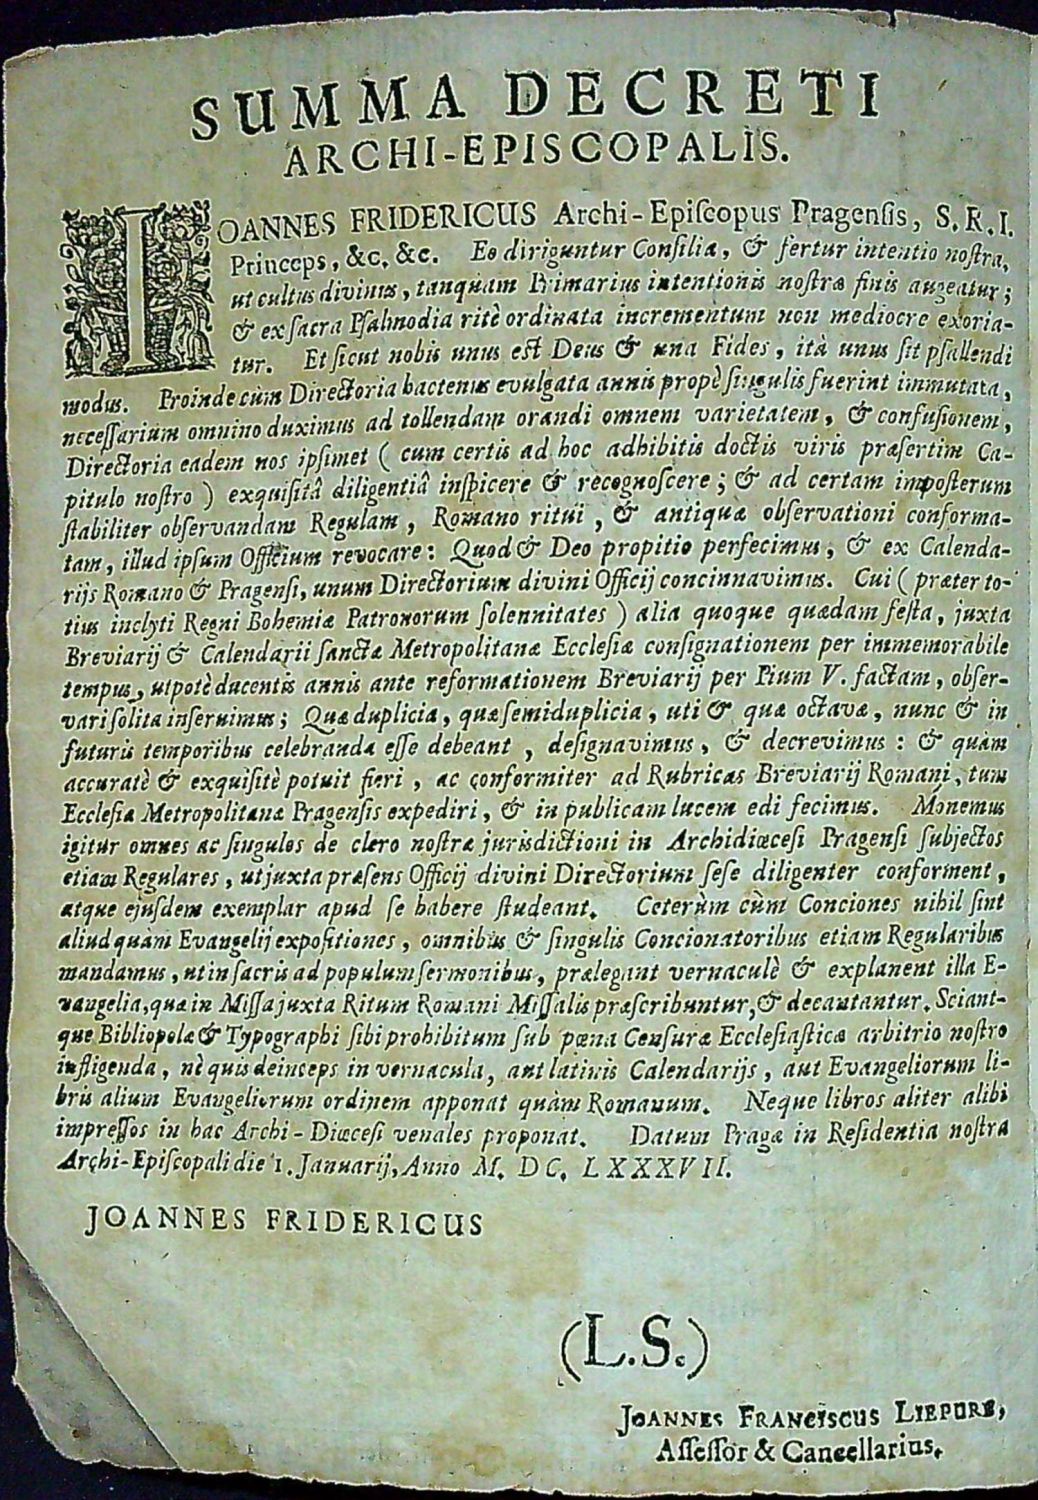 SUMMA DECRETI
ARCHI-EPISCOPALIS.
IOANNES FRIDERICUS Archi-Epiſcopus Pragenſis, S.R.I.
Princeps, &c. &c. Eo diriguntur Conſilia, & fertur intentio noſtra,
ut cultus divinus, tanquam Primarius intentionis noſtræ finis augeatur;
& ex ſacra Pſalmodia ritè ordinata incrementum non mediocre exoria-
tur. Et ſicut nobis unus eſt Deus & una Fides, ità unus ſit pſallendi
modus. Proinde cùm Directoria hactenus evulgata annis propè ſingulis fuerint immutata,
neceſſarium omnino duximus ad tollendam orandi omnem varietatem, & confuſionem,
Directoria eadem nos ipſimet ( cum certis ad hoc adhibitis doctis viris præſertim Ca-
pitulo noſtro ) exquiſitâ diligentiâ inſpicere & recognoſcere; & ad certam impoſterum
ſtabiliter obſervandam Regulam, Romano ritui, & antiquæ obſervationi conforma-
tam, illud ipſum Officium revocare: Quod & Deo propitio perfecimus, & ex Calenda-
rijs Romano & Pragenſi, unum Directorium divini Officij concinnavimus. Cui ( præter to-
tius inclyti Regni Bohemiæ Patronorum ſolennitates ) alia quoque quædam feſta, juxta
Breviarij & Calendarii ſanctæ Metropolitanæ Eccleſiæ conſignationem per immemorabile
tempus, utpotè ducentis annis ante reformationem Breviarij per Pium V. factam, obſer-
vari ſolita inſeruimus; Quæ duplicia, quæ ſemiduplicia, uti & quæ octavæ, nunc & in
futuris temporibus celebranda eſſe debeant, deſignavimus, & decrevimus: & quàm
accuratè & exquiſitè potuit fieri, ac conformiter ad Rubricas Breviarij Romani, tum
Eccleſiæ Metropolitanæ Pragenſis expediri, & in publicam lucem edi fecimus. Monemus
igitur omnes ac ſingulos de clero noſtræ jurisdictioni in Archidiœceſi Pragenſi ſubjectos
etiam Regulares, ut juxta præſens Officij divini Directorium ſeſe diligenter conforment,
atque ejuſdem exemplar apud ſe habere ſtudeant. Ceterùm cùm Conciones nihil ſint
aliud quàm Evangelij expoſitiones, omnibus & ſingulis Concionatoribus etiam Regularibus
mandamus, ut in ſacris ad populum ſermonibus, prælegant vernaculè & explanent illa E-
vangelia, quæ in Miſſa juxta Ritum Romani Miſſalis præſcribuntur, & decantantur. Sciant-
que Bibliopolæ & Typographi ſibi prohibitum ſub pœna Cenſuræ Eccleſiaſticæ arbitrio noſtro
infligenda, nè quis deinceps in vernacula, aut latinis Calendarijs, aut Evangeliorum li-
bris alium Evangeliorum ordinem apponat quàm Romanum. Neque libros aliter alibi
impreſſos in hac Archi-Diœceſi venales proponat. Datum Pragæ in Reſidentia noſtra
Archi-Epiſcopali die 1. Januarij, Anno M. DC. LXXXVII.
JOANNES FRIDERICUS
(L.S.)
JOANNES FRANCISCUS LIEPURE,
Aſſeſſor & Cancellarius.